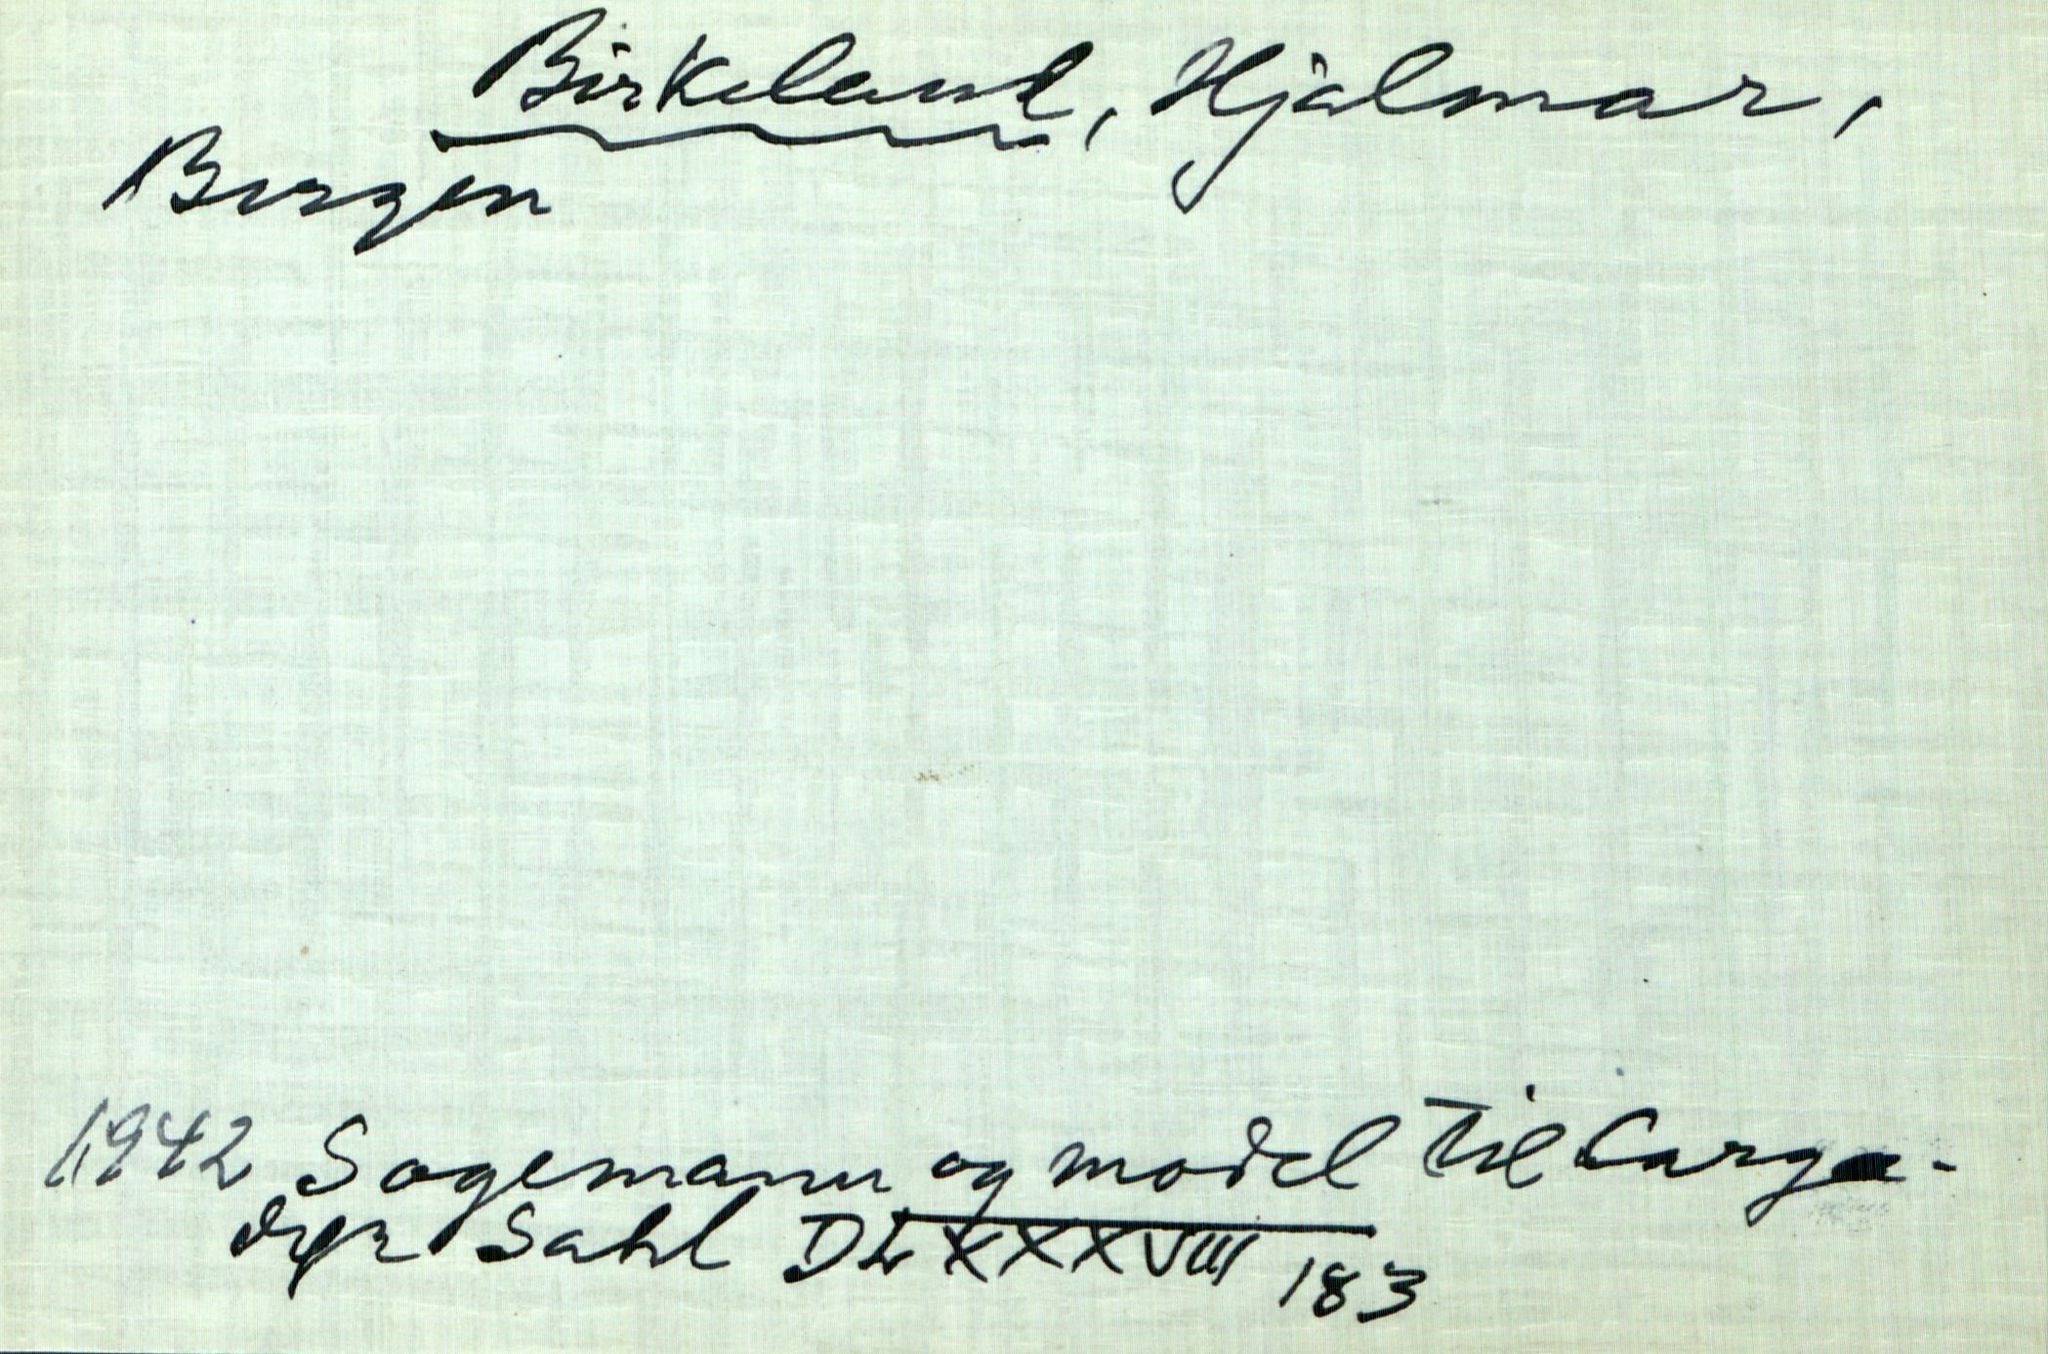 Birkeland, Hjalmar,
Bergen
1942 Sagemann og model til Carga-
dyr Sahl DLXXXVIII 183